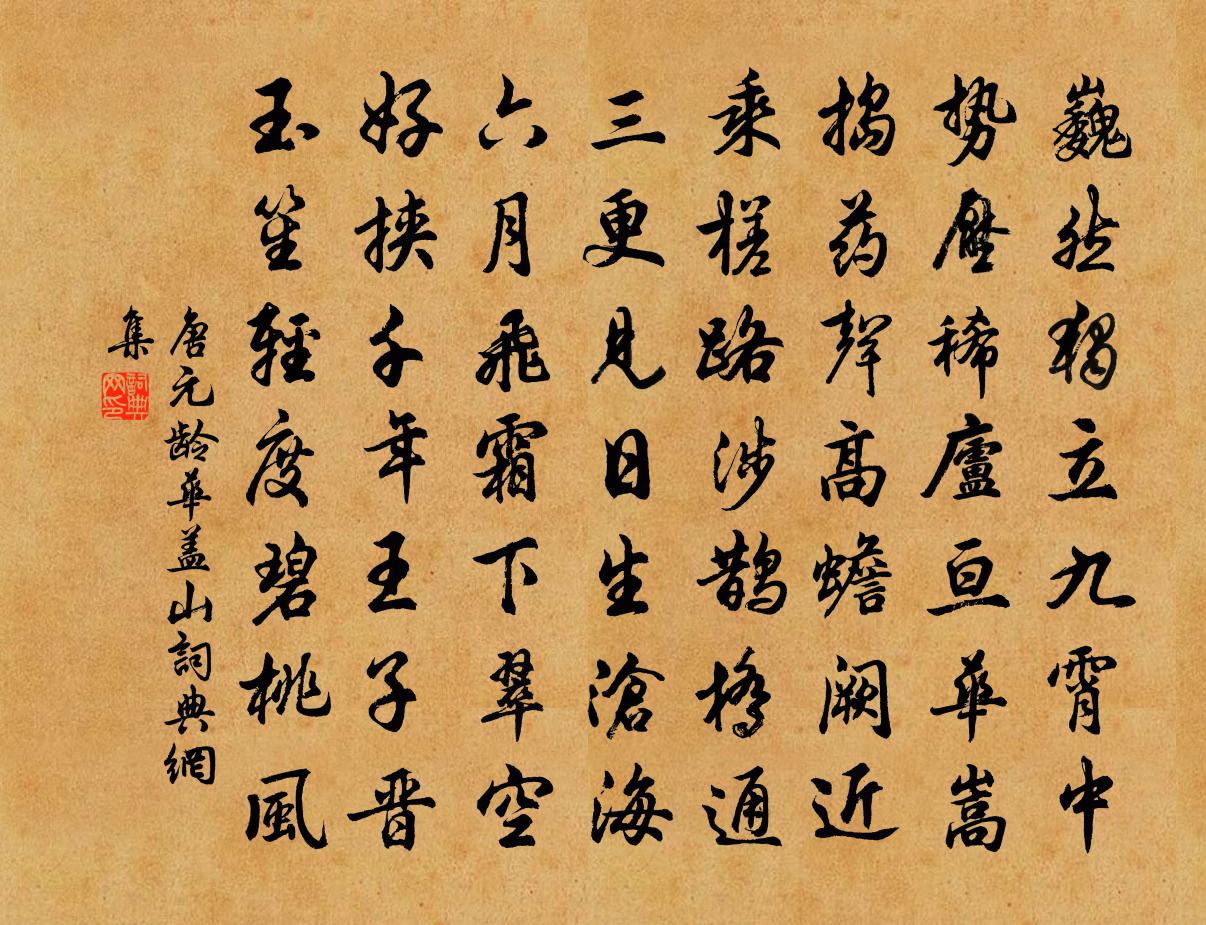 巍然獨立九霄中
勢壓稀廬亘華嵩
搗药聲高蟾闕近
乘槎路涉鵲橋通
三更見日生滄海
六月飛霜下翠空
好挾千年王子晋
玉笙輕度碧桃風
唐元龄華盖山詞典網
集
詞典
网印